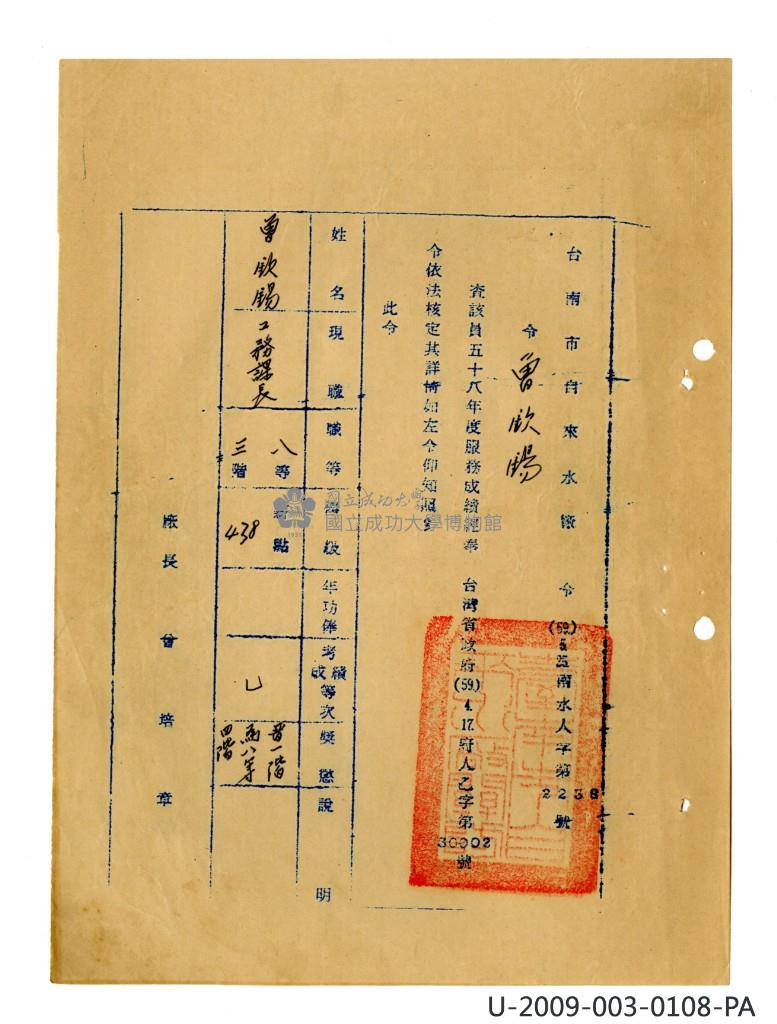 台南市自來水廠 令 (59.) 5. 25. 南水人字第2238號
令 曾欽錫
查該員五十八年度服務成績經奉 台灣省政府(59.) 4. 17. 府人乙字第30002號
令依法核定其詳情如左令仰知照
此令
姓名
現職
職等
級
年功俸
考績成績等次
獎懲
說明
曾欽錫
工務課長
八等三階
438點
乙
晉一階為八等四階
廠長 曾培章
國立成功大學
國立成功大學博物館
1931
U-2009-003-0108-PA